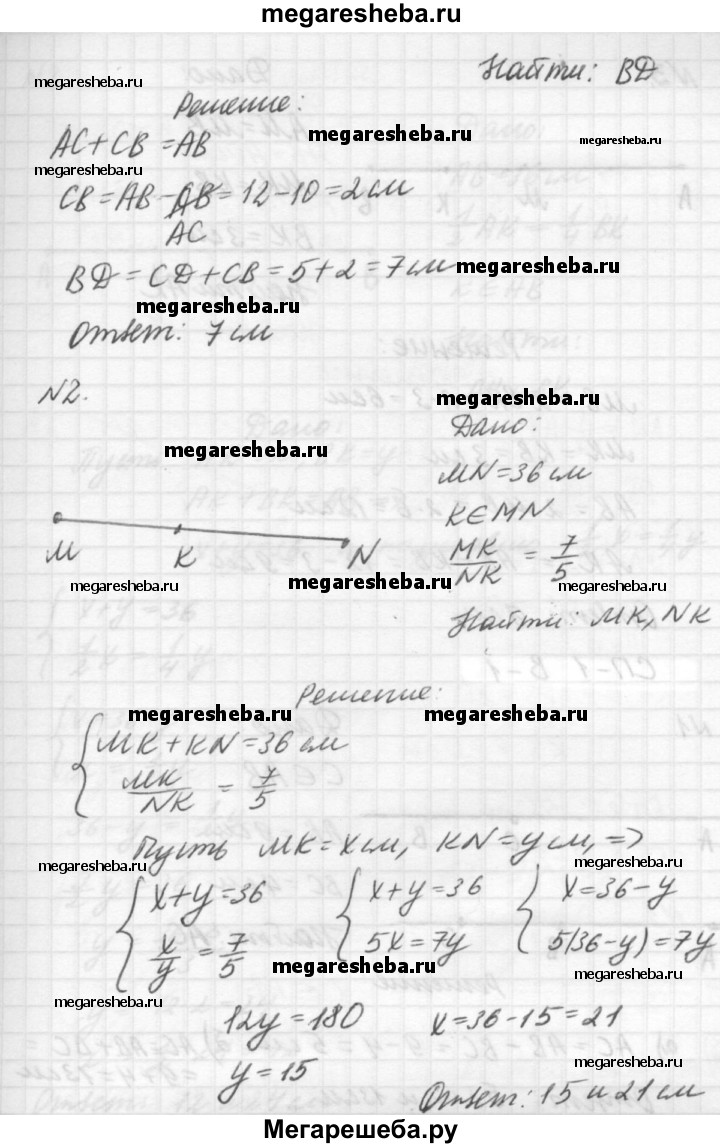 megaresheba.ru
Найти: BD
megaresheba.ru
Решение:
AC+CB=AB
megaresheba.ru
megaresheba.ru
megaresheba.ru
CB=AB-AB=12-10=2см
AC
BD=CD+CB=5+2=7см
megaresheba.ru
megaresheba.ru
Ответ: 7см
N2.
megaresheba.ru
Дано:
megaresheba.ru
MN=36см
K∈MN
M K N
MK/NK = 7/5
megaresheba.ru
megaresheba.ru
megaresheba.ru
Найти: MK, NK
Решение:
megaresheba.ru
megaresheba.ru
{MK+KN=36см
MK/NK = 7/5
Пусть MK=xсм, KN=yсм, =>
megaresheba.ru
megaresheba.ru
{x+y=36 {x+y=36 {x=36-y
x/y = 7/5 5x=7y 5(36-y)=7y
megaresheba.ru
megaresheba.ru
megaresheba.ru
12y=180 x=36-15=21
y=15
megaresheba.ru
Ответ: 15 и 21см
Мегарешеба.ру